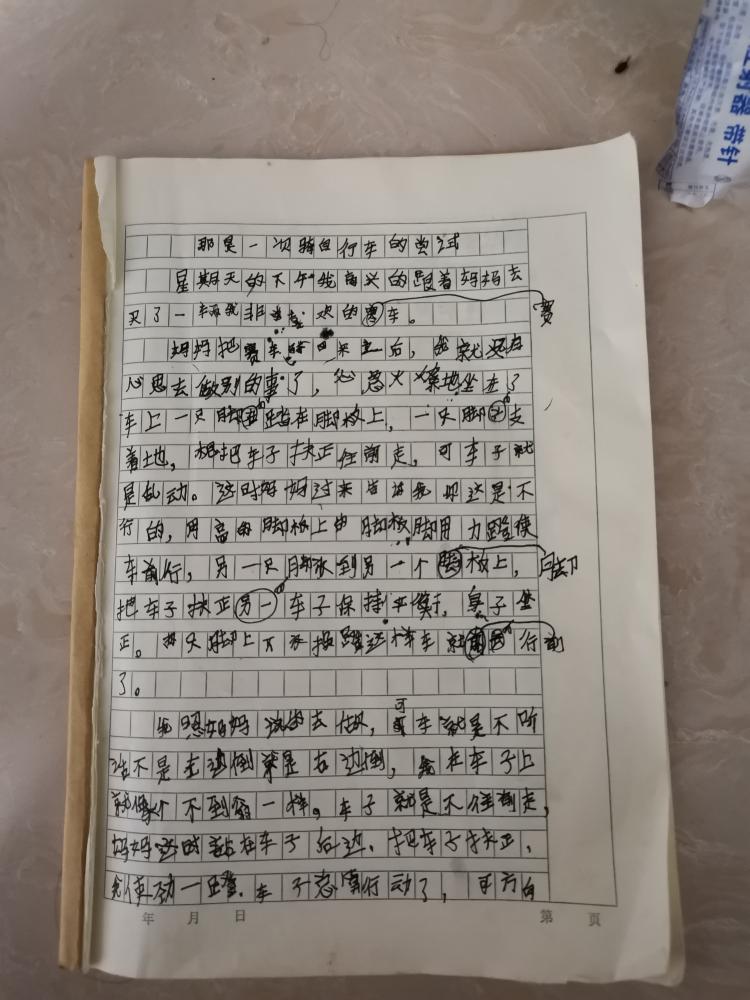 射器 带针
那是一次骑自行车的尝试
星期天的下午我高兴的跟着妈妈去
买了一辆我非常喜欢的赛车。
妈妈把赛车 回来之后，我就没有
心思去做别的事了，心急火燎地坐在了
车上一只脚 踏在脚板上，一只脚 支
着地，想把车子扶正往前走，可车子就
是乱动。这时妈妈过来告诉我 这是不
行的，用高的脚板上的脚板脚用力蹬使
车前行，另一只脚 到另一个脚板上，
把车子扶正另一车子保持平衡，身子坐
正。 只脚上下 这样车就 行
了。
我照妈妈说的去做，可车就是不听
话不是左边倒就是右边倒， 在车子上
就像 不倒翁一样。车子就是不往前走，
妈妈这时站在车子后边，把车子扶正，
我使劲一蹬，车子总算行动了，可方向
年 月 日 第 页